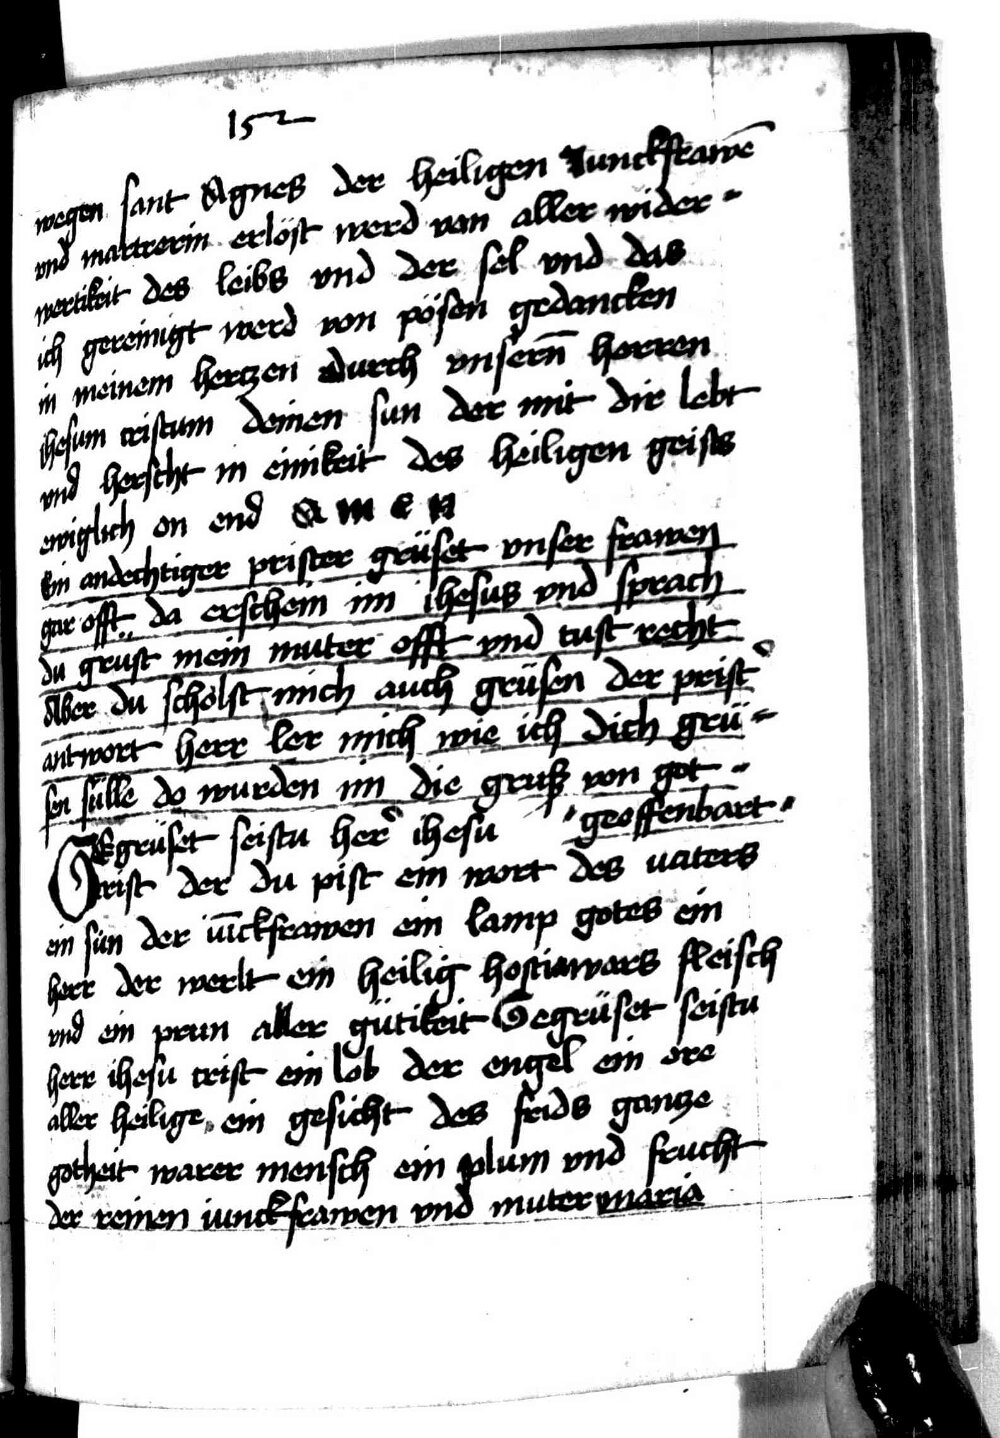 152
wegen sant Agnes der heiligen Junckfrawē
vnd martrerin erlöst werd von aller wider-
wertikeit des leibs vnd der sel vnd das
ich gereinigt werd von pösen gedancken
in meinem hertzen durch vnsern̄ herren
ihesum cristum deinen sun der mit dir lebt
vnd herscht in einikeit des heiligen geists
ewiglich on end AMEN
Ein andechtiger prister grüset vnser frawen
gar offt da erschein im ihesus vnd sprach
du grust mein muter offt vnd tust recht
Aber du scholst mich auch grüsen der prist'
antwort herr ler mich wie ich dich grü-
sen sülle do wurden im die gruß von got -
GEgrüset seistu her' ihesu "geoffenbart"
crist der du pist ein wort des vaters
ein sün der iūckfrawen ein lamp gotes ein
herr der werlt ein heilig hostia wars fleisch
vnd ein prun aller gütikeit Gegrüset seistu
herr ihesu crist ein lob der engel ein ere
aller heilige ein gesicht des frids gantze
gotheit warer mensch ein plum vnd frucht
der reinen iunckfrawen vnd muter maria